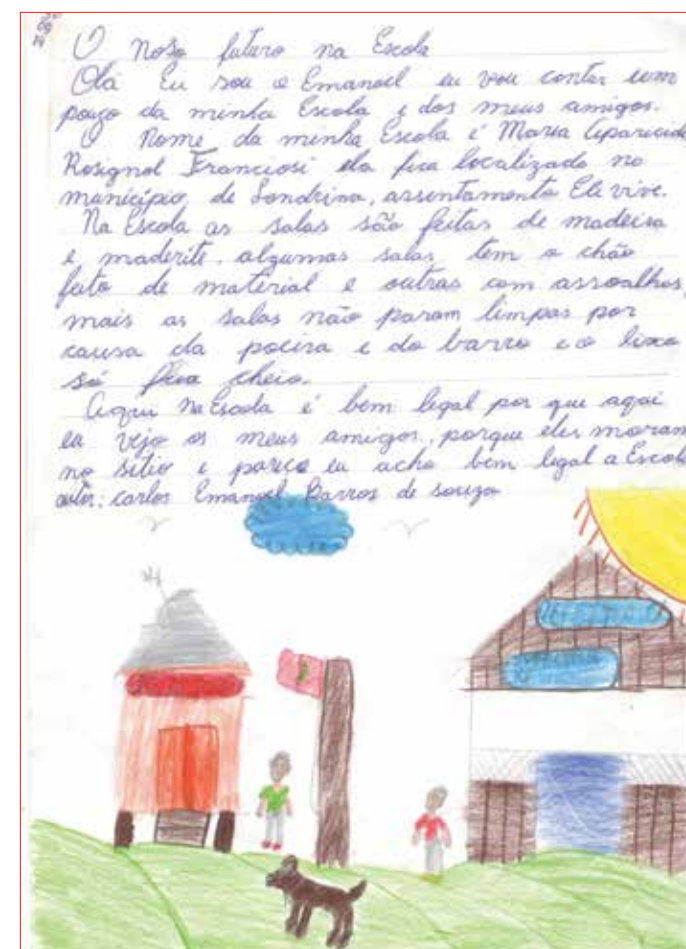 O noso futuro na Escola
Olá Eu sou o Emanoel eu vou contar um
pouço da minha Escola e dos meus amigos.
O Nome da minha Escola é Maria Aparecida
Rosignol Franciosi ela fica localizado no
município de Londrina, assentamento Eli vive.
Na Escola as salas são feitas de madeira
e maderite, algumas salas tem o chão
feito de material e outras com assoalhos,
mais as salas não param limpas por
causa da poeira e do barro e o lixo
só fica cheio.
Aqui na Escola é bem legal por que aqui
eu vejo os meus amigos, porque eles moram
no sitio e por eu acho bem legal a Escola
autor: carlos Emanoel Barros de souza